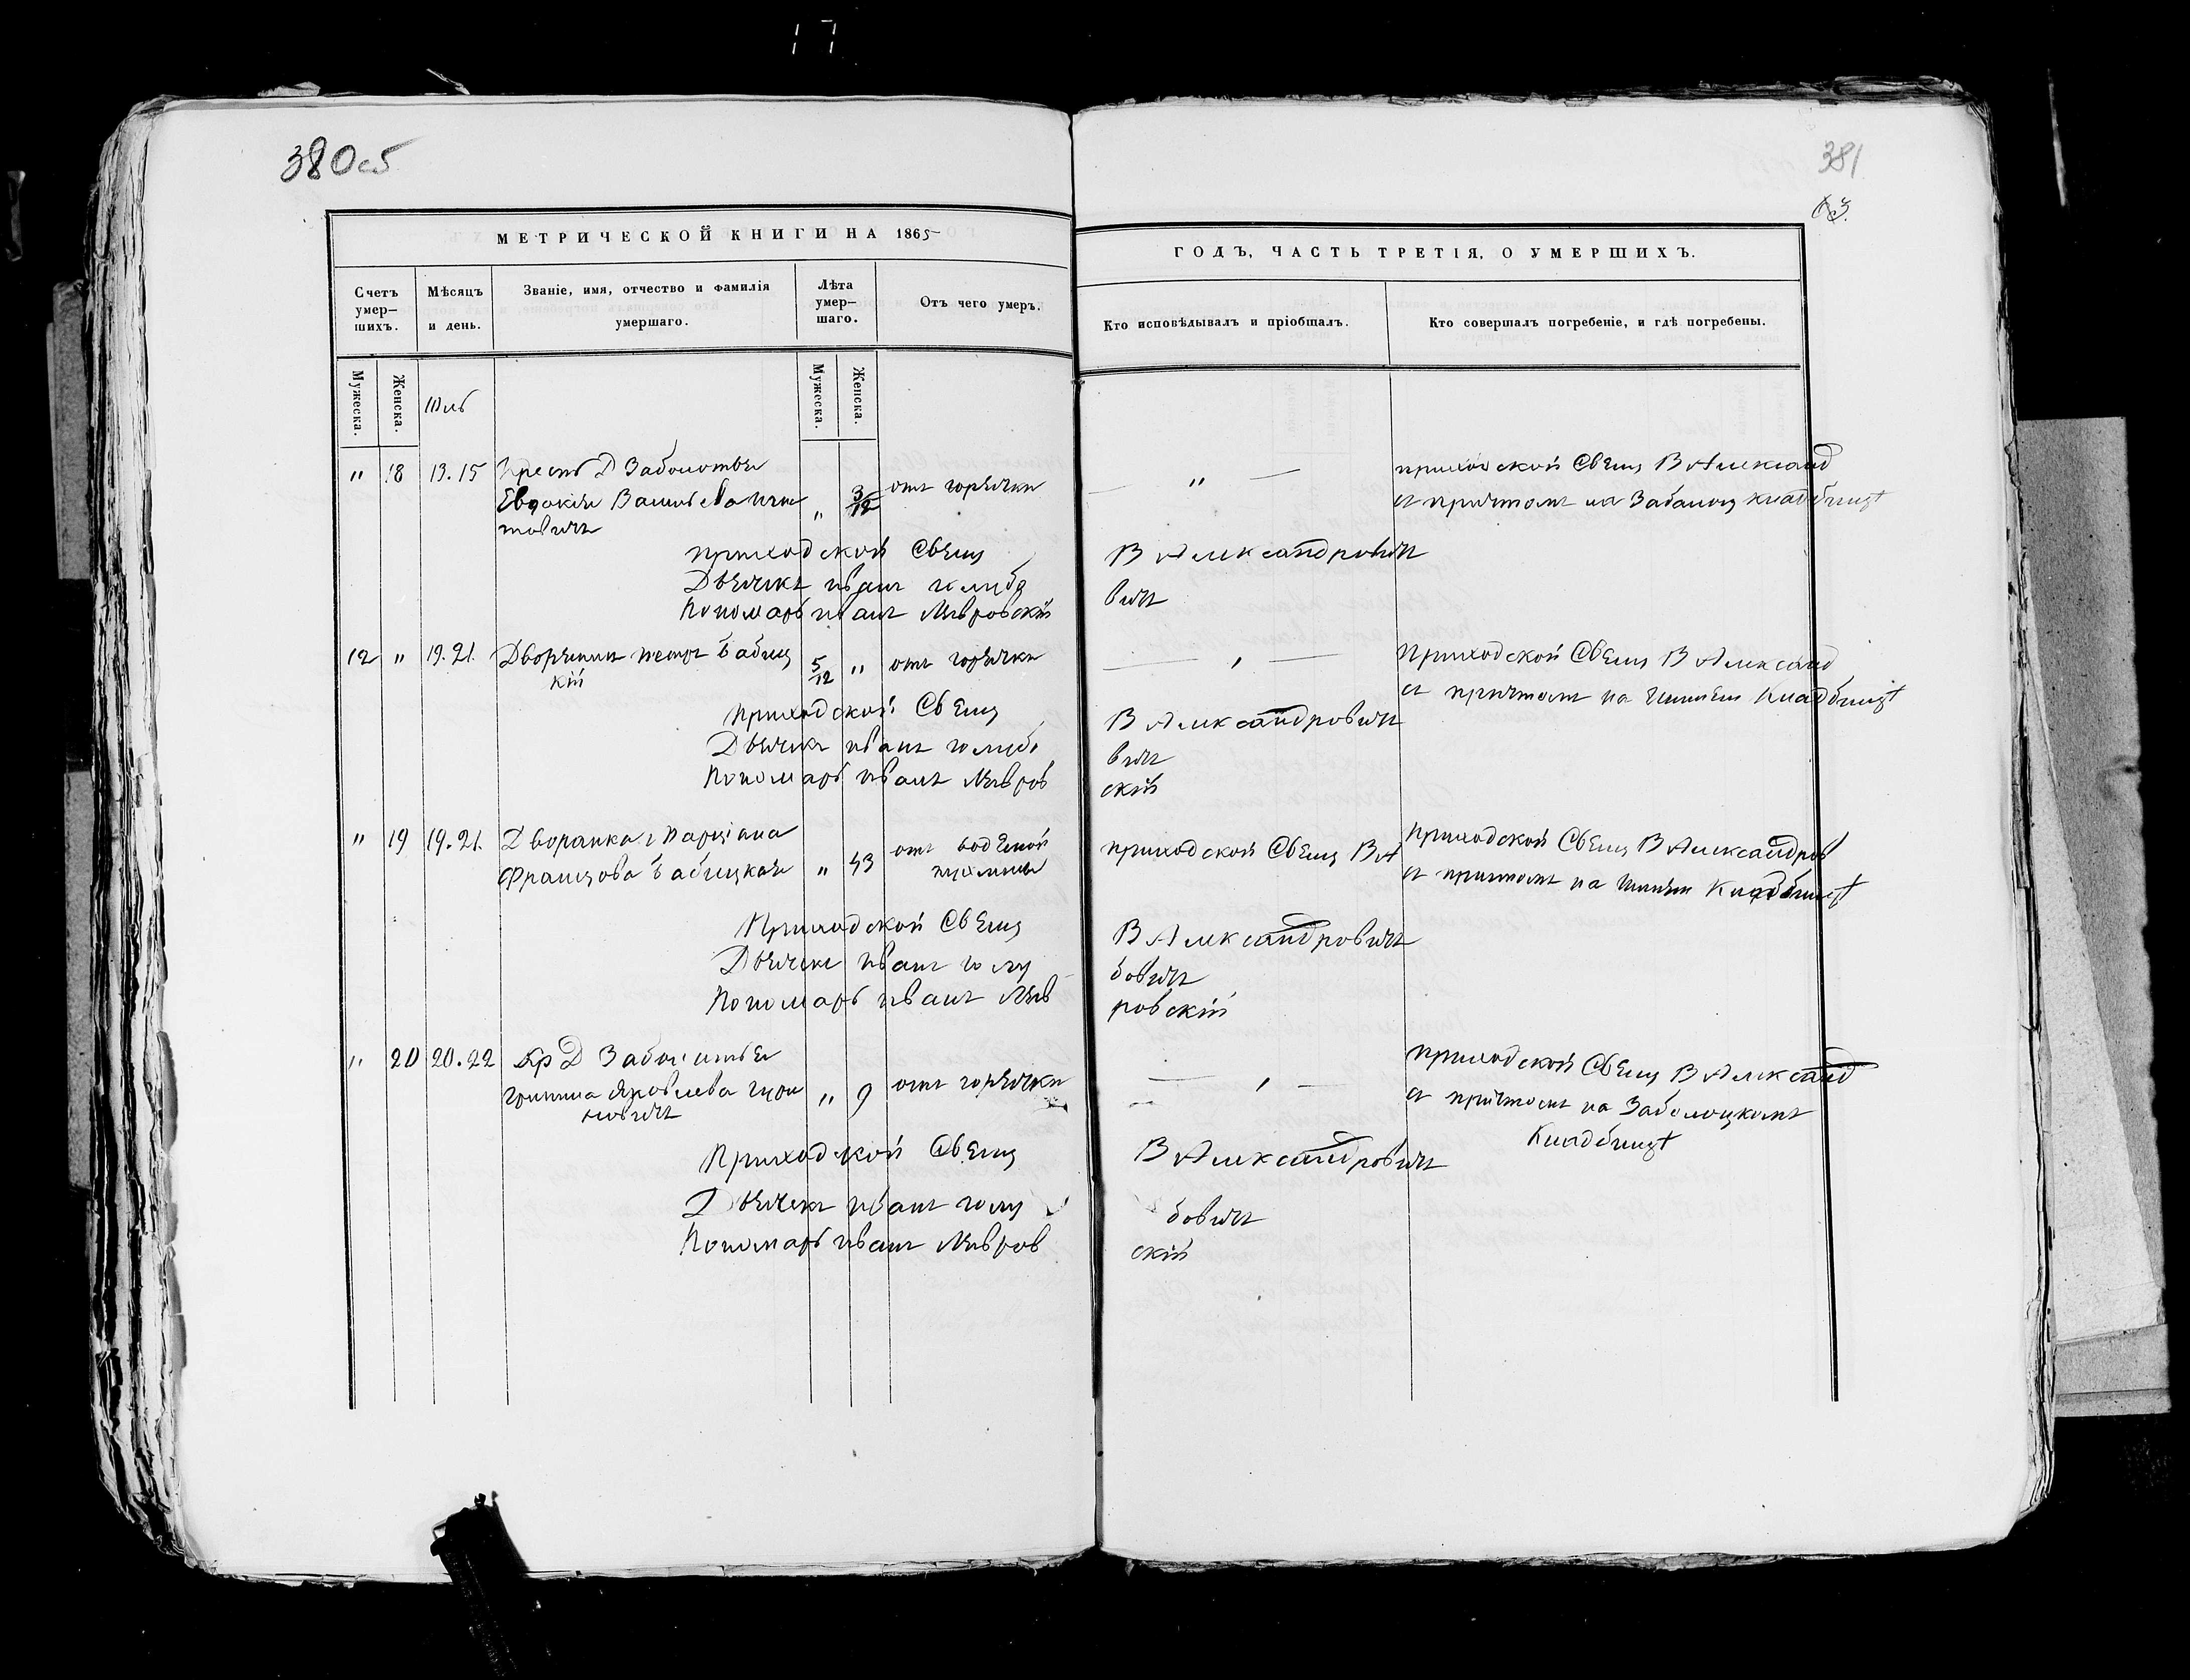 17
380об
МЕТРИЧЕСКОЙ КНИГИ НА 1865
Счетъ умер-шихъ.
Мѣсяцъ и день.
Званіе, имя, отчество и фамилія умершаго.
Лѣта умер-шаго.
Отъ чего умеръ.
Мужеска.
Женска.
Мужеска.
Женска.
Юль
" 18 13.15 Крест Д Заболотья
Евдокія " 3/12 отъ горячки
товичъ
приходской Свящ
Дьячекъ иванъ голубо
Пономарь иванъ
12 " 19.21. Дворянинъ петръ бабиц 5/12 " отъ горячки
кій
приходской Свящ
Дьячекъ иванъ голубо
Пономарь иванъ
" 19 19.21. Дворанка
францова бабицкая " 43 отъ водяной
пухлины
Приходской Свящ
Дьячекъ иванъ голу
Пономарь иванъ
" 20 20.22 Кр Д Заболотья
Яковлева " 9 отъ горячки
новичъ
Приходской Свящ
Дьячекъ иванъ голу
Пономарь иванъ
381
ГОДЪ, ЧАСТЬ ТРЕТІЯ, О УМЕРШИХЪ.
Кто исповѣдывалъ и пріобщалъ.
Кто совершалъ погребеніе, и гдѣ погребены.
— " — приходской Свящ В Александ
съ причтомъ на Заболоц кладбищѣ
В Александровичъ
вичъ
— " — Приходской Свящ В Александ
съ причтомъ на кладбищѣ
В Александровичъ
вичъ
скій
приходской Свящ В А приходской Свящ В Александров
съ причтомъ на Кладбищѣ
В Александровичъ
бовичъ
ровскій
— " — приходской Свящ В Александ
съ причтомъ на Заболоцкомъ
Кладбищѣ
В Александровичъ
бовичъ
скій